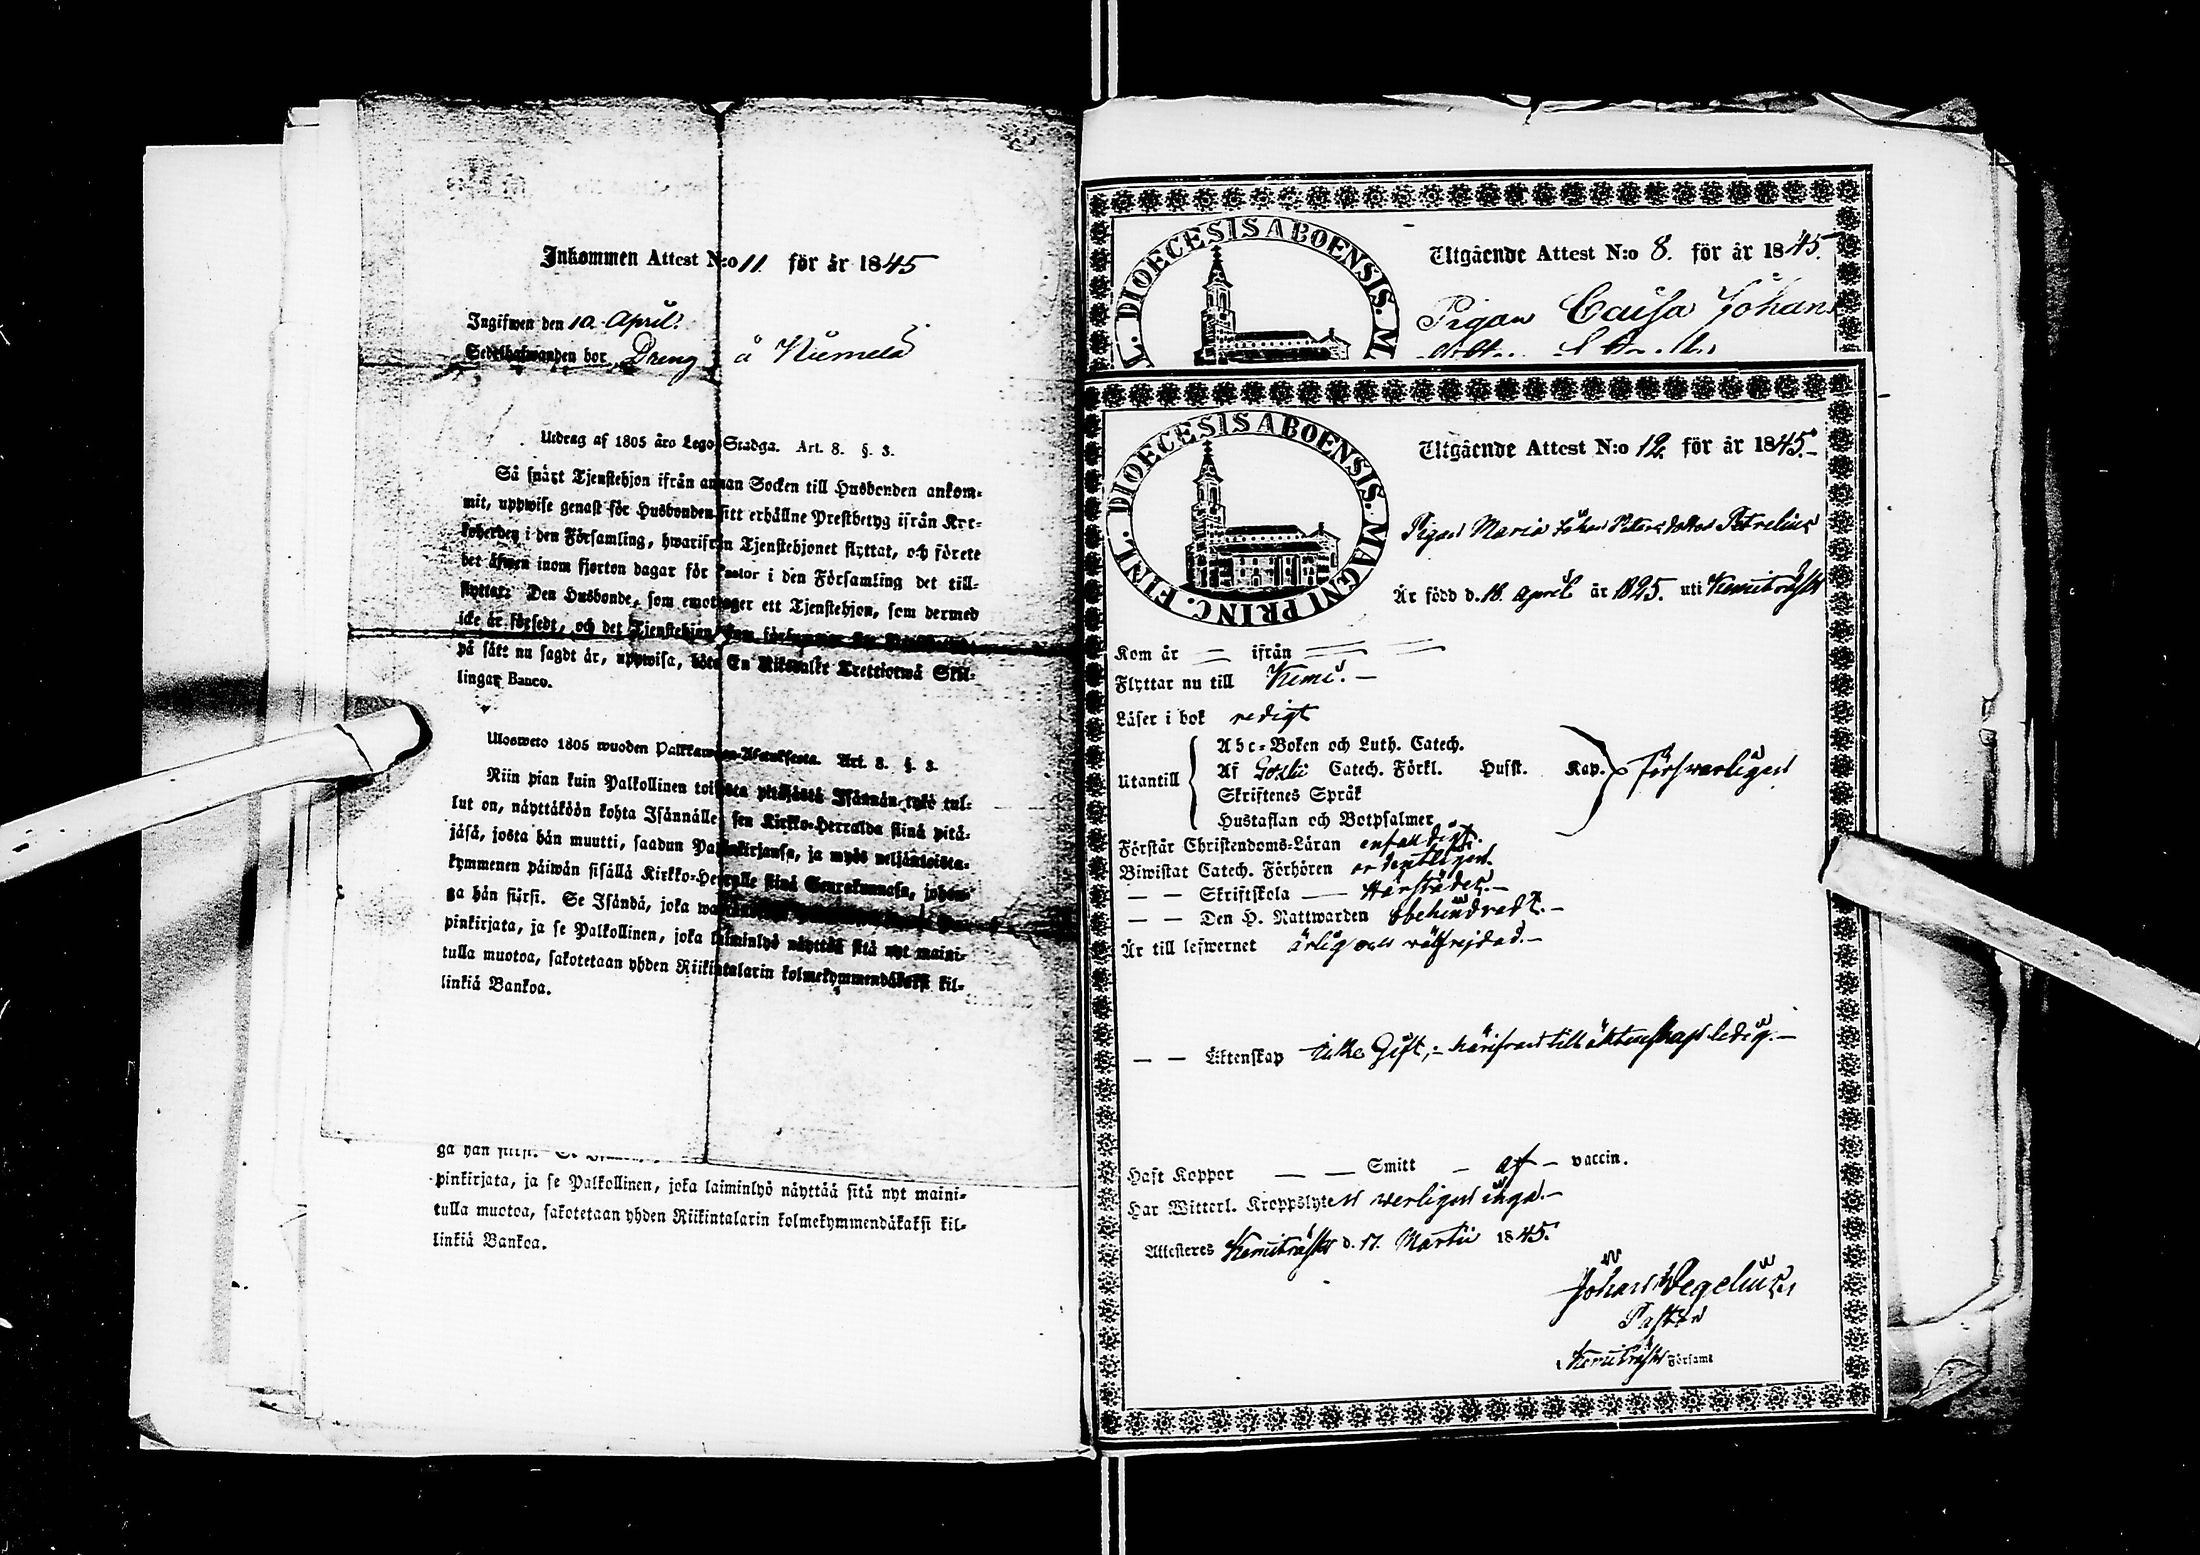 Inkommen Attest N:o 11. för år 1845
Ingifwen den 10 April.
Sedelhafwanden bor Dreng å Niemelä
Utdrag af 1805 års Lego-Stadga. Art. 8. §. 3.
Så snärt Tjenstehjon ifrån annan Socken till Husbonden ankom-
mit, uppwise genast för Husbonden sitt erhållne Prestbetyg ifrån Kyr-
koherden i den Församling, hwarifrån Tjenstehjonet flyttat, och förete
det äfwen inom fjorton dagar för Pastor i den Församling det till-
flyttat. Den Husbonde, som emottager ett Tjenstehjon, som dermed
icke är försedt, och det Tjenstehjon som försummar
på sätt nu sagdt är, uppwisa, böte En Riksdaler Trettiotwå Skil-
lingar Banco.
Ulosweto 1805 wuoden Palkkawäen-Asetuksesta. Art. 8. §. 3.
Niin pian kuin Palkollinen toisesta pitäjästä Isännän tykö tul-
lut on, näyttäköön kohta Isännälle sen Kirkko-Herralda siinä pitä-
jäsä, josta hän muutti, saadun Papinkirjansa, ja myös neljäntoista-
kymmenen päiwän sisällä Kirkko-Herralle siinä Seurakunnasa, johon-
ga hän siirsi. Se Isändä, joka
pinkirjata, ja se Palkollinen, joka laiminlyö näyttää sitä nyt maini-
tulla muotoa, sakotetaan yhden Riikintalarin kolmekymmendäkaksi kil-
linkiä Bankoa.
ga hän siirsi. Se
pinkirjata, ja se Palkollinen, joka laiminlyö näyttää sitä nyt maini-
tulla muotoa, sakotetaan yhden Riikintalarin kolmekymmendäkaksi kil-
linkiä Bankoa.
L. DIOECESIS ABOENSIS. M
Utgående Attest N:o 8. för år 1845.
Pigan Caisa Johans
FINL. DIOECESIS ABOENSIS. MAGNI PRINC.
Utgående Attest N:o 12. för år 1845.-
Pigan Maria Johan Petersdotter Petrelius
Är född d. 18. April år 1825. uti Kemiträsk
Kom år ifrån
Flyttar nu till Kemi. -
Läser i bok redigt
Utantill
Abc-Boken och Luth. Catech.
Af Catech. Förkl. Husst. Kap. försvarligen
Skriftenes Språk
Hustaflan och Botpsalmer
Förstår Christendoms-Läran enfaldigt.
Biwistat Catech. Förhören ordentligen.
— — Skriftskola — härstädes.-
— — Den H. Nattwarden obehindradt.-
Är till lefwernet ärlig och wälfrejdad.-
— — Äktenskap icke Gift, - härifrån till äktenskap ledig.-
Haft Koppor — — Smitt - af - vaccin.
Har Witterl. Kroppslyten werligen inga.-
Attesteres Kemiträsk d. 17. Martii 1845.
Johan Wegelius
Pastor
Kemiträsk Församl